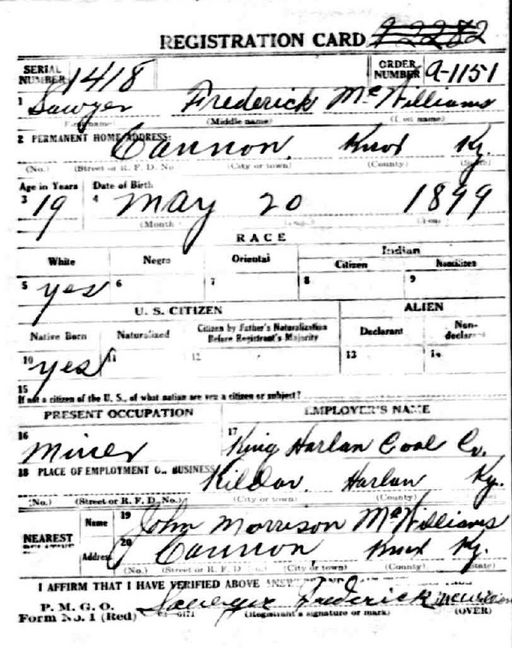 REGISTRATION CARD
SERIAL NUMBER 1418 ORDER NUMBER A-1151
1 Sawyer Frederick McWilliams
(First name) (Middle name) (Last name)
2 PERMANENT HOME ADDRESS:
Cannon, Knox Ky.
(No.) (Street or R. F. D. No (City or town) (County) (State)
Age in Years Date of Birth
3 19 4 May 20 1899
(Month
RACE
White Negro Oriental Indian
Citizen Noncitizen
5 yes 6 7 8 9
U. S. CITIZEN ALIEN
Native Born Naturalized Citizen by Father's Naturalization Before Registrant's Majority Declarant Non-declarant
10 yes 11 12 13 14
15
If not a citizen of the U. S., of what nation are you a citizen or subject?
PRESENT OCCUPATION EMPLOYER'S NAME
16 Miner 17 King Harlan Coal Co.
18 PLACE OF EMPLOYMENT OR BUSINESS
Kildav, Harlan Ky.
(No.) (Street or R. F. D. No.) (City or town) (County)
NEAREST
Name 19 John Morrison McWilliams
Address 20 Cannon Knox Ky.
(No.) (Street or R. F. D. No.) (City or town) (County) (State)
I AFFIRM THAT I HAVE VERIFIED ABOVE
P. M. G. O.
Form No. 1 (Red) Sawyer Frederick McWilliams
(Registrant's signature or mark) (OVER)